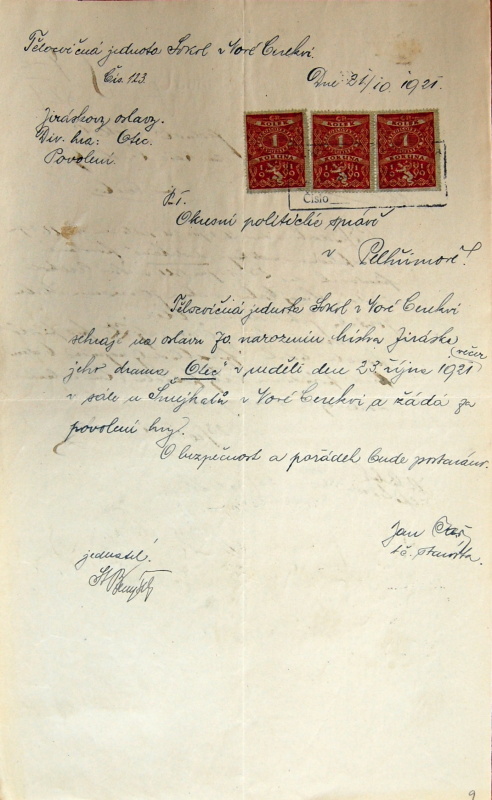 Tělocvičná jednota Sokol v Nové Cerekvi
Čís. 123.
Dne 21/10. 1921.
Jiráskovy oslavy.
Div. hra: Otec.
Povolení.
ČS.
KOLEK
1
KORUNA
1919
ČS.
KOLEK
1
KORUNA
1919
ČS.
KOLEK
1
KORUNA
1919
Číslo
P.T.
Okresní politické správě
v Pelhřimově!
Tělocvičná jednota Sokol v Nové Cerekvi
sehraje na oslavu 70. narozenin mistra Jiráska
večer
jeho drama "Otec" v neděli dne 23. října 1921
v sále u Šmejkalů v Nové Cerekvi a žádá za
povolení hry.
O bezpečnost a pořádek bude postaráno.
Jan
t. č. starosta.
jednatel.
9